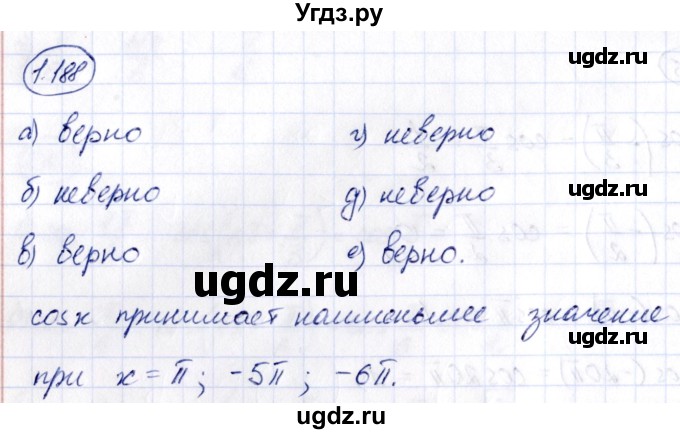 Угдз.ру
ugdz.ru
1.188
а) верно г) неверно
б) неверно д) неверно
ugdz.ru
в) верно е) верно.
ugdz.ru
cos x принимает наименьшее значение
ugdz.ru
при x = π; -5π; -6π.
ugdz.ru